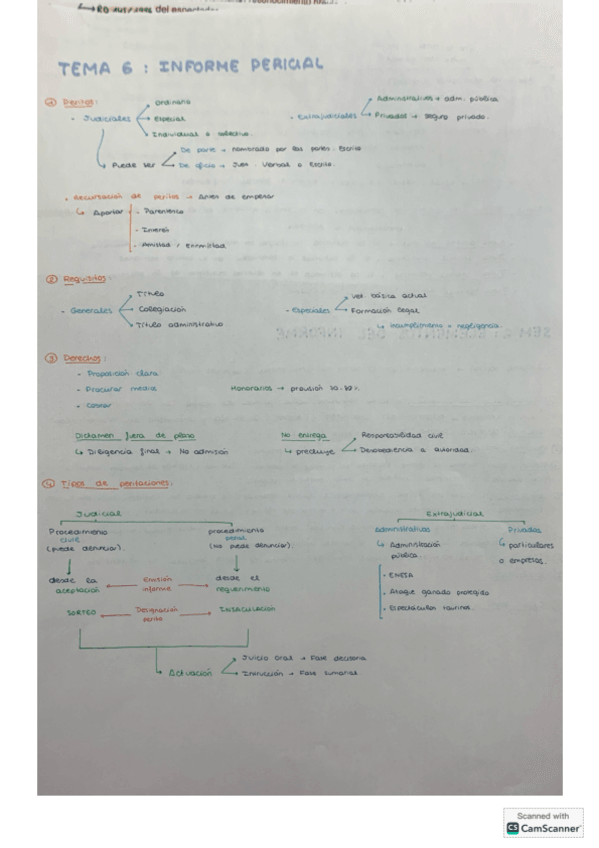 del
TEMA 6 : INFORME PERICIAL
① Peritos:
- Judiciales
Ordinario
Especial
Individual o colectivo.
- Extrajudiciales
Administrativos → adm. pública
Privados → seguro privado.
Puede ser
De parte → nombrado por las partes. Escrito
De oficio → Juez. Verbal o Escrito.
• Recusación de peritos → Antes de empezar
↳ Aportar
- Parentesco
- Interés
- Amistad / enemistad
② Requisitos:
- Generales
Título
Colegiación
Título administrativo
- Especiales
Vet. básica actual
Formación legal
↳ incumplimiento = negligencia.
③ Derechos:
- Proposición clara
- Procurar medios
- Cobrar
Honorarios → provisión
Dictamen fuera de plazo
↳ Diligencia final → No admisión
No entrega
↳ precluye
Responsabilidad civil
Desobediencia a autoridad.
④ Tipos de peritaciones:
Judicial
Procedimiento civil (puede denunciar).
procedimiento penal (No puede denunciar).
desde la aceptación ← Emisión informe → desde el requerimiento
SORTEO ← Designación perito → INSACULACIÓN
↳ Actuación
Juicio Oral → Fase decisoria
Instrucción → Fase sumarial
Extrajudicial
Administrativos
↳ Administración pública.
- ENESA
- Ataque ganado protegido
- Espectáculos taurinos.
Privados
↳ particulares o empresas.
Scanned with
CS CamScanner